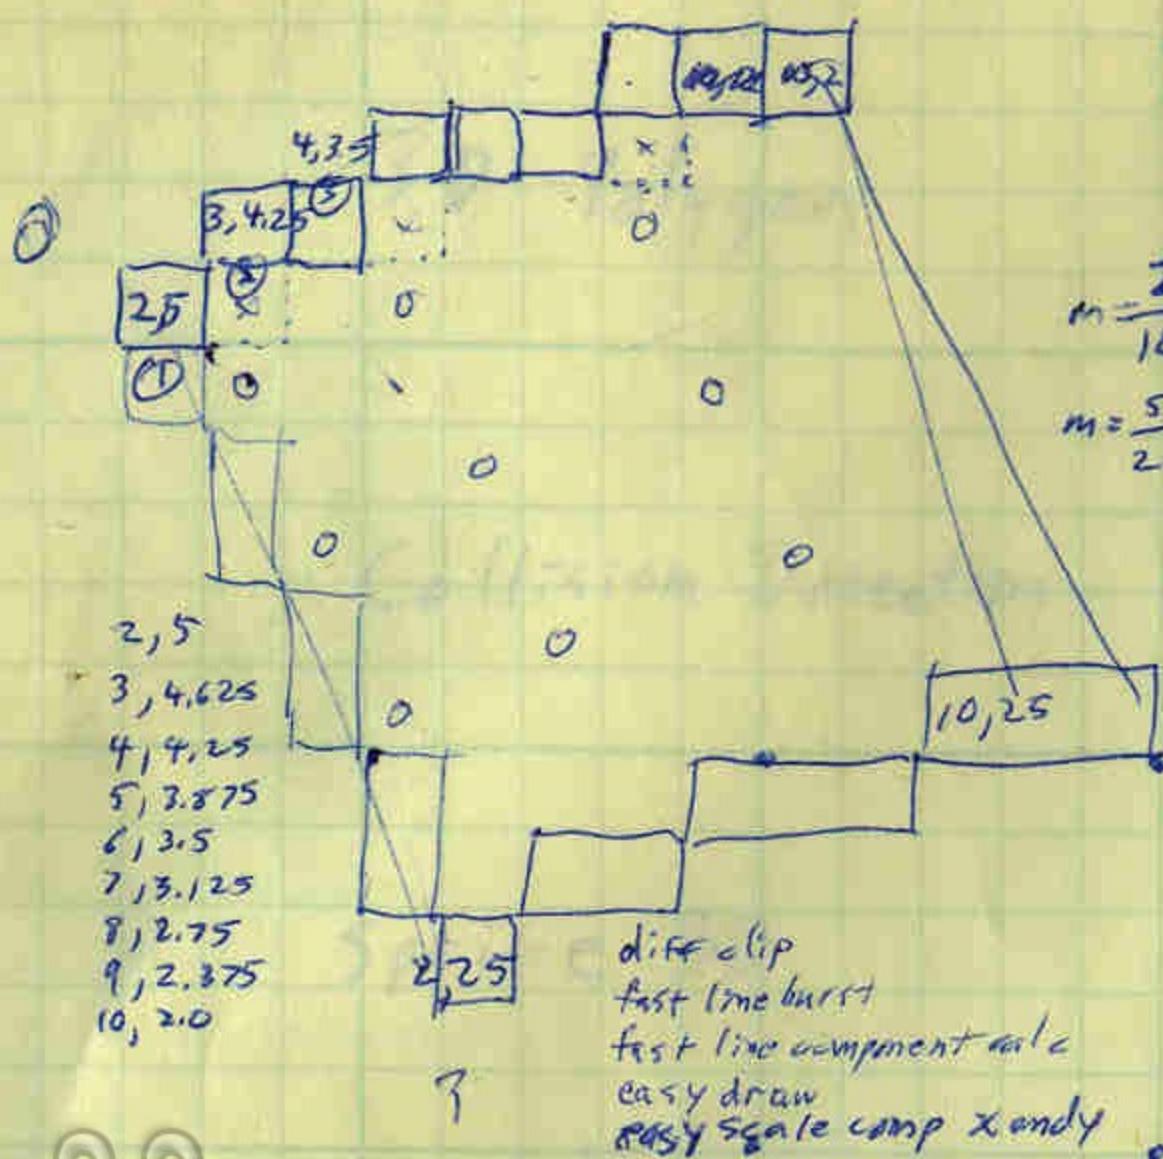 4,35
3,4.25
2,5
m =
m = 5
2
2,5
3,4.625
4,4.25
5,3.875
6,3.5
7,3.125
8,2.75
9,2.375
10,2.0
10,25
2,25
diff clip
fast line burst
fast line component calc
easy draw
easy scale comp x and y